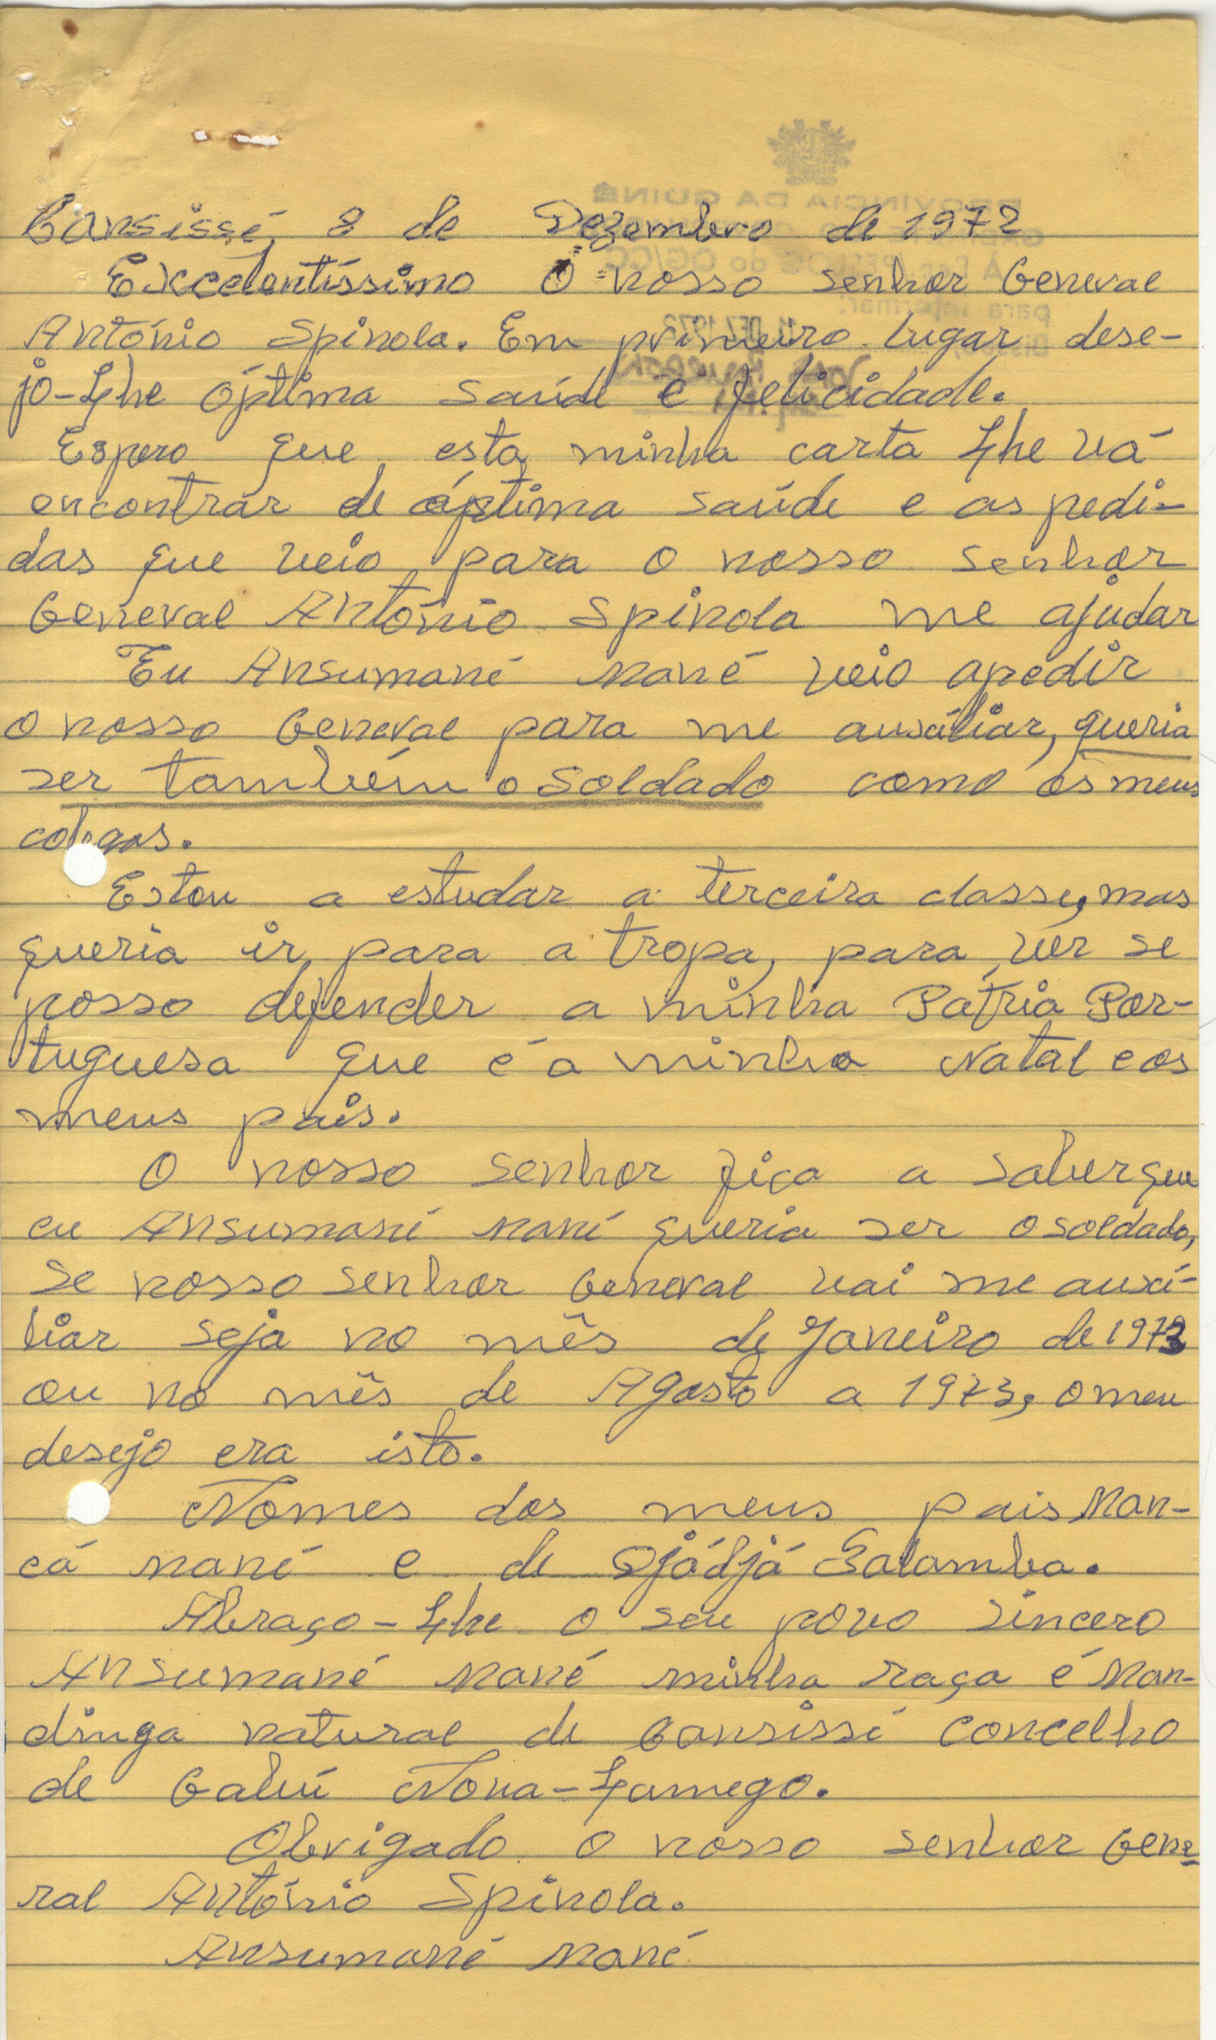 PROVINCIA DA GUINÉ
Cansissé, 8 de Dezembro de 1972
Excelentíssimo O nosso senhor General
António Spínola. Em primeiro lugar dese-
jo-Lhe óptima saúde e felicidade.
Espero que esta minha carta Lhe vá
encontrar de óptima saúde e as pedi-
das que veio para o nosso senhor
General António Spínola me ajudar
Eu Ansumané Mané veio apedir
o nosso General para me auxíliar, queria
ser também o soldado como os meus
colegas.
Estou a estudar a terceira classe, mas
queria ir para a tropa, para ver se
posso defender a minha Pátria Por-
tuguesa que é a minha Natal e os
meus pais.
O nosso senhor fica a saber que
eu Ansumané Mané queria ser o soldado,
se nosso senhor General vai me auxí-
liar seja no mês de Janeiro de 1973
ou no mês de Agosto a 1973, o meu
desejo era isto.
Nomes dos meus pais Man-
cá Mané e de Djádjá Galamba.
Abraço-Lhe o seu povo sincero
Ansumané Mané minha raça é Man-
dinga natural de Cansissé concelho
de Gabú Nova-Lamego.
Obrigado o nosso senhor Gene-
ral António Spínola.
Ansumané Mané